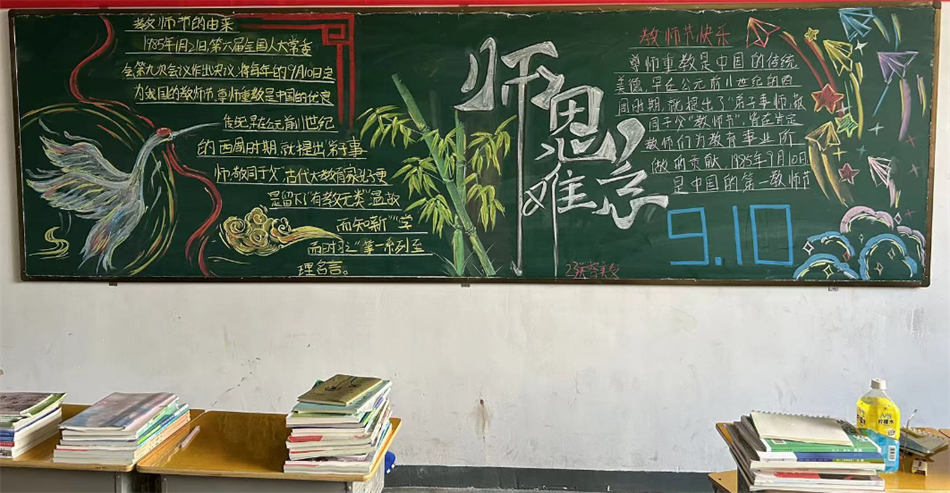 教师节的由来
1985年1月21日,第六届全国人大常委
会第九次会议作出决议,将每年的9月10日定
为我国的教师节,尊师重教是中国的优良
传统,早在公元前11世纪
的西周时期,就提出弟子事
师,敬同于父"古代大教育家孔子更
是留下了"有教无类"温故
而知新""学
而时习之"等一系列至
理名言。
师恩
难忘
教师节快乐
尊师重教是中国的传统
美德,早在公元前11世纪的西
周时期,就提出了"弟子事师,敬
同于父"教师节",旨在肯定
教师们为教育事业所
做的贡献,1985年9月10日
是中国的第一教师节
9.10